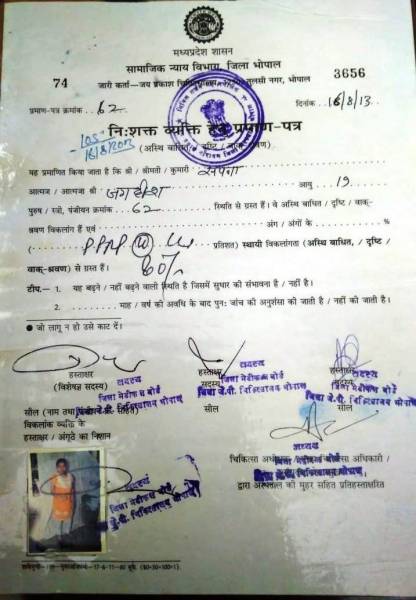 मध्यप्रदेश शासन
सामाजिक न्याय विभाग, जिला भोपाल
74 जारी कर्ता—जय प्रकाश तुलसी नगर, भोपाल 3656
प्रमाण-पत्र क्रमांक 62 दिनांक 16/8/13
16/8/2013
निःशक्त व्यक्ति हेतु प्रमाण-पत्र
(अस्थि बाधित / दृष्टि / श्रवण)
यह प्रमाणित किया जाता है कि श्री / श्रीमती / कुमारी सपना
आत्मज / आत्मजा श्री जगदीश आयु 19
पुरुष / स्त्री, पंजीयन क्रमांक 62 स्थिति से ग्रस्त हैं। वे अस्थि बाधित / दृष्टि / वाक्-
श्रवण विकलांग हैं एवं अंग / अंगों के %
( प्रतिशत) स्थायी विकलांगता (अस्थि बाधित, / दृष्टि /
वाक्-श्रवण) से ग्रस्त हैं। 60%
टीप.— 1. यह बढ़ने / नहीं बढ़ने वाली स्थिति है जिसमें सुधार की संभावना है / नहीं है।
2. माह / वर्ष की अवधि के बाद पुनः जांच की अनुशंसा की जाती है / नहीं की जाती है।
● जो लागू न हो उसे काट दें।
हस्ताक्षर हस्ताक्षर हस्ताक्षर
(विशेषज्ञ सदस्य) सदस्य सदस्य
सदस्य
जिला मेडीकल बोर्ड
जिला जे.पी. चिकित्सालय भोपाल
सील (नाम तथा सील सील
विकलांग व्यक्ति के
हस्ताक्षर / अंगूठे का निशान
अध्यक्ष
चिकित्सा अधीक्षक / अधिकारी /
जिला मेडीकल बोर्ड
जिला जे.पी. चिकित्सालय भोपाल
द्वारा अस्पताल की मुहर सहित प्रतिहस्ताक्षरित
सदस्य
जिला मेडीकल बोर्ड
जिला जे.पी. चिकित्सालय भोपाल